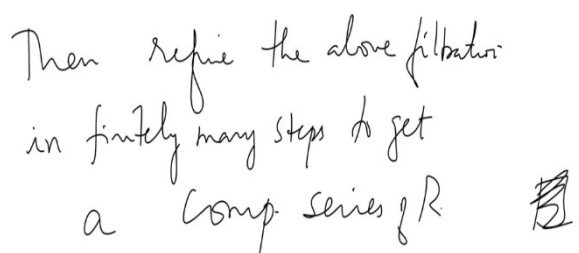 Then refine the above filtration
in finitely many steps to get
a comp. series of R.